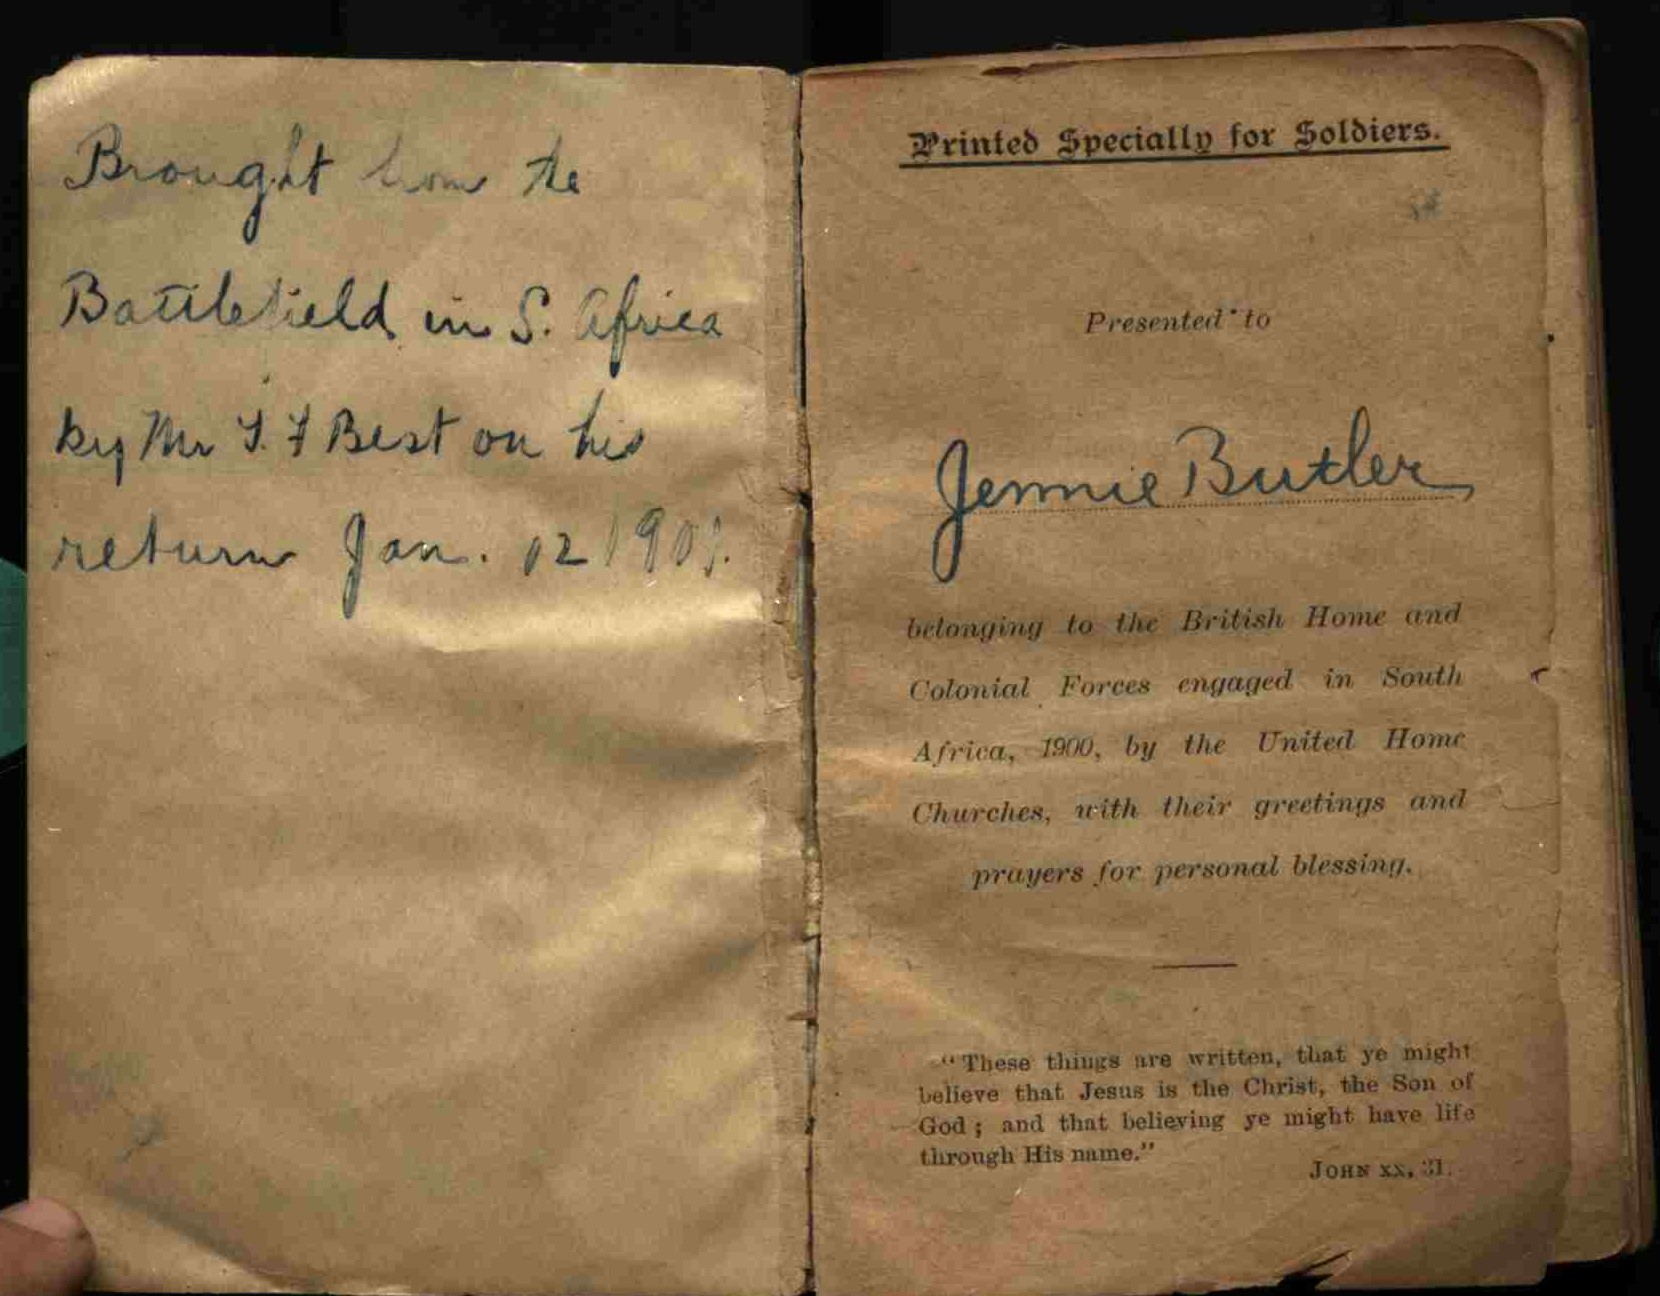 Brought from the
Battlefield in S. Africa
by Mr T. F Best on his
return Jan. 12 1901.
Printed Specially for Soldiers.
Presented to
Jennie Butler
belonging to the British Home and
Colonial Forces engaged in South
Africa, 1900, by the United Home
Churches, with their greetings and
prayers for personal blessing.
"These things are written, that ye might
believe that Jesus is the Christ, the Son of
God; and that believing ye might have life
through His name."
JOHN XX, 31.